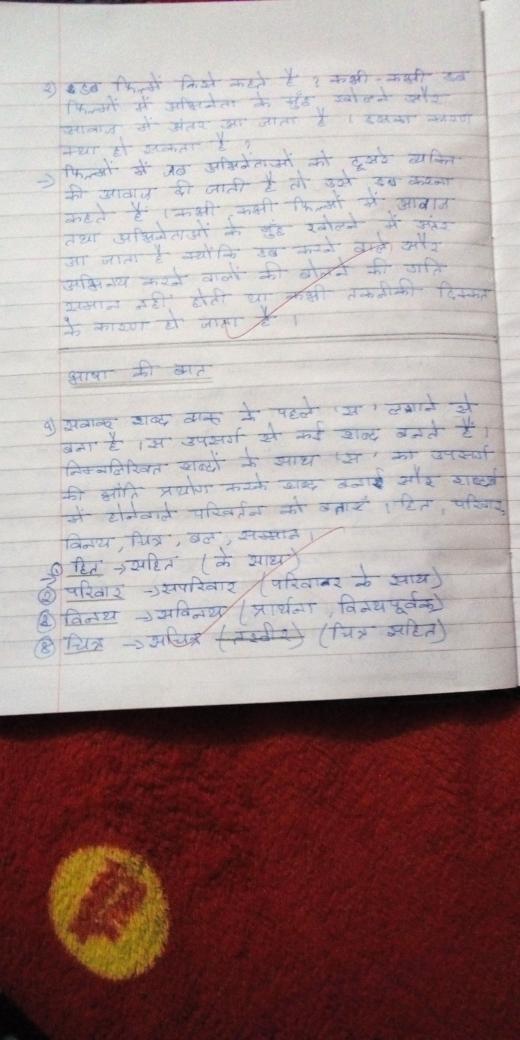 २) डब फिल्में किसे कहते है ? कभी-कभी डब
फिल्मों में अभिनेता के मुँह खोलने और
आवाज में अंतर आ जाता है । इसका कारण
क्या हो सकता है ?
→ फिल्मों में जब अभिनेताओं को दूसरे व्यक्ति
की आवाज दी जाती है तो उसे डब करना
कहते है । कभी कभी फिल्मों में आवाज
तथा अभिनेताओं के मुँह खोलने में अंतर
आ जाता है क्योंकि डब करने वाले और
अभिनय करने वालों की बोलने की गति
समान नहीं होती या कभी तकनीकी दिक्कत
के कारण हो जाता है ।
भाषा की बात
१) सवाक् शब्द वाक् के पहले 'स' लगाने से
बना है । स उपसर्ग से कई शब्द बनते हैं ।
निम्नलिखित शब्दों के साथ 'स' का उपसर्ग
की भाँति प्रयोग करके शब्द बनाएँ और शब्दार्थ
में होनेवाले परिवर्तन को बताएं । हित, परिवार,
विनय, चित्र, बल, सम्मान ।
→ ① हित → सहित (के साथ)
② परिवार → सपरिवार (परिवार के साथ)
विनय → सविनय (प्रार्थना, विनयपूर्वक)
चित्र → सचित्र (तस्वीर) (चित्र सहित)